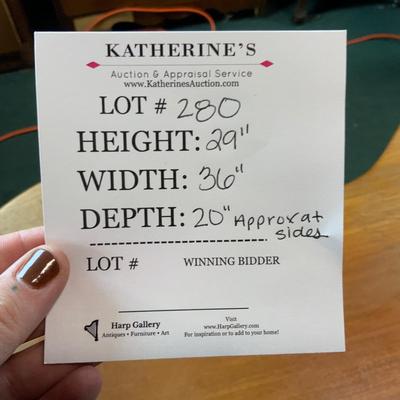 KATHERINE'S
Auction & Appraisal Service
www.KatherinesAuction.com
LOT # 280
HEIGHT: 29"
WIDTH: 36"
DEPTH: 20" Approx at
sides
LOT # WINNING BIDDER
Harp Gallery
Antiques • Furniture • Art
Visit
www.HarpGallery.com
For inspiration or to add to your home!